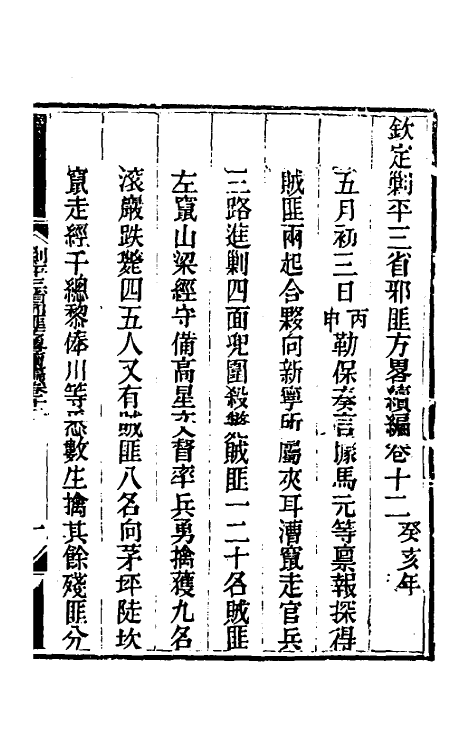 欽定剿平三省邪匪方畧續編卷十二 癸亥年
五月初三日丙申勒保奏言據馬元等稟報探得
賊匪兩起合夥向新寧所屬夾耳漕竄走官兵
三路進剿四面兜圍殺斃賊匪一二十名賊匪
左竄山梁經守備高星文督率兵勇擒獲九名
滾巖跌斃四五人又有賊匪八名向茅坪陡坎
竄走經千總黎俸川等悉數生擒其餘殘匪分